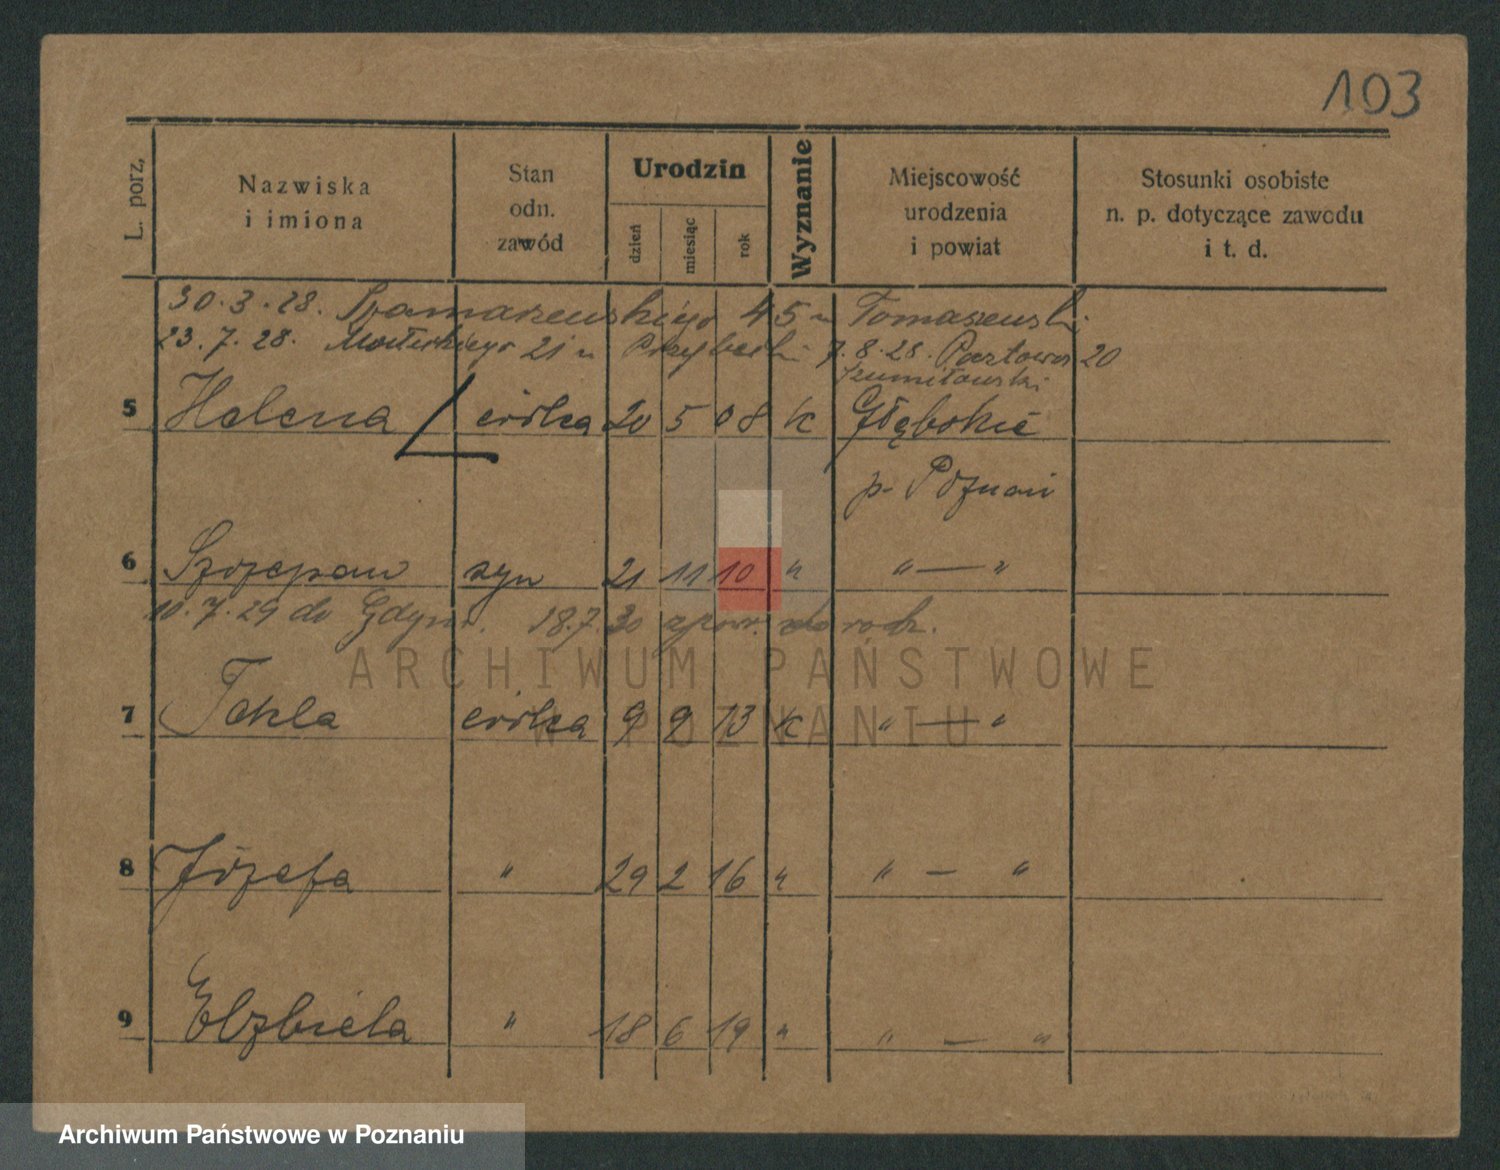 103
L. porz.
Nazwiska
i imiona
Stan
odn.
zawód
Urodzin
dzień
miesiąc
rok
Wyznanie
Miejscowość
urodzenia
i powiat
Stosunki osobiste
n. p. dotyczące zawodu
i t. d.
30.3.28. Szamarzewskiego 45 u Tomaszewski
23.7.28. 21 u Przybecki 7.8.28. Pocztowa 20
Szumiłowski
5 Helena córka 20 5 08 k Głębokie
p. Poznań
6 Szczepan syn 21 11 10 " " — "
10.7.29 do Gdyni. 18.7.30 zpow. do rodz.
7 Tekla córka 9 9 13 k " — "
8 Józefa " 29 2 16 " " — "
9 Elżbieta " 18 6 19 " " — "
ARCHIWUM PAŃSTWOWE
W POZNANIU
Archiwum Państwowe w Poznaniu